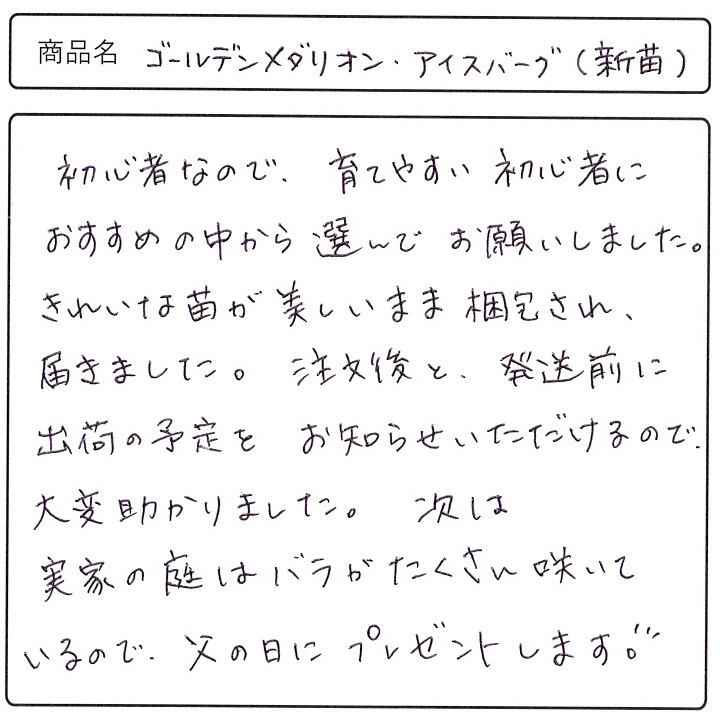 商品名 ゴールデンメダリオン・アイスバーグ(新苗)
初心者なので、育てやすい初心者に
おすすめの中から選んでお願いしました。
きれいな苗が美しいまま梱包され、
届きました。注文後と、発送前に
出荷の予定をお知らせいただけるので、
大変助かりました。次は
実家の庭はバラがたくさん咲いて
いるので、父の日にプレゼントします。